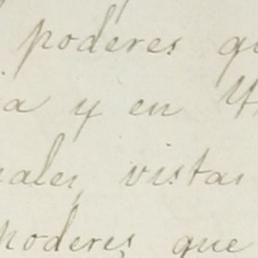 poderes qu
ia y en
ales, vistas
poderes que